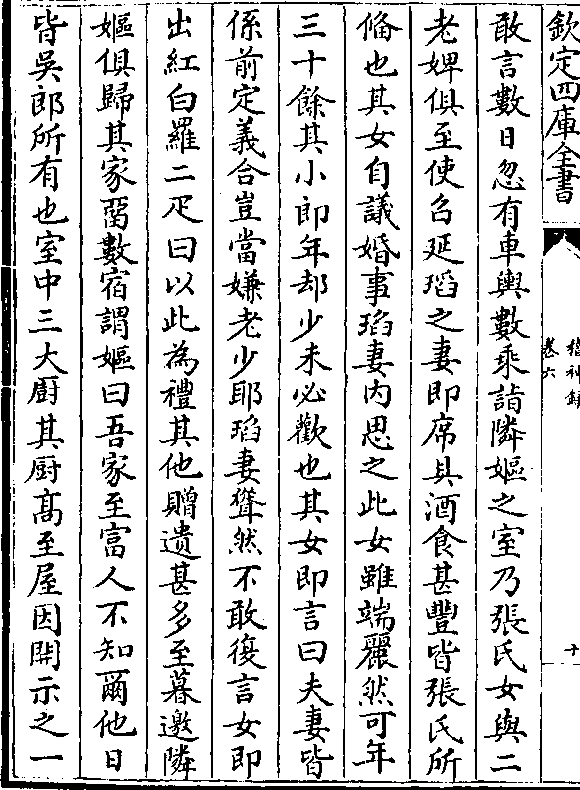 欽定四庫全書
稽神錄
卷六
十
敢言數日忽有車輿數乘詣隣嫗之室乃張氏女與二
老婢俱至使召延瑫之妻即席具酒食甚豐皆張氏所
俻也其女自議婚事瑫妻内思之此女雖端麗然可年
三十餘其小郎年却少未必歡也其女即言曰夫妻皆
係前定義合豈當嫌老少耶瑫妻聳然不敢復言女即
出紅白羅二疋曰以此為禮其他贈遺甚多至暮邀隣
嫗俱歸其家留數宿謂嫗曰吾家至富人不知爾他日
皆吳郎所有也室中三大厨其厨髙至屋因開示之一